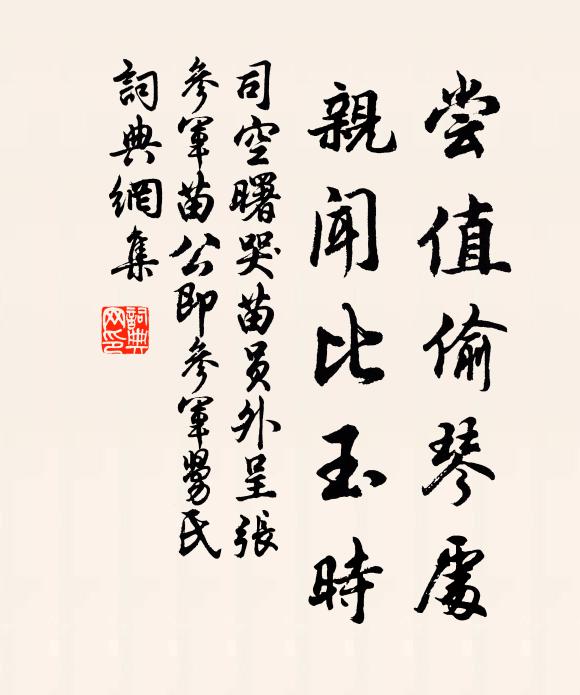 尝值偷琴處
親聞比玉時
司空曙哭苗员外呈張
參軍苗公即參軍舅氏
詞典網集
詞典网印